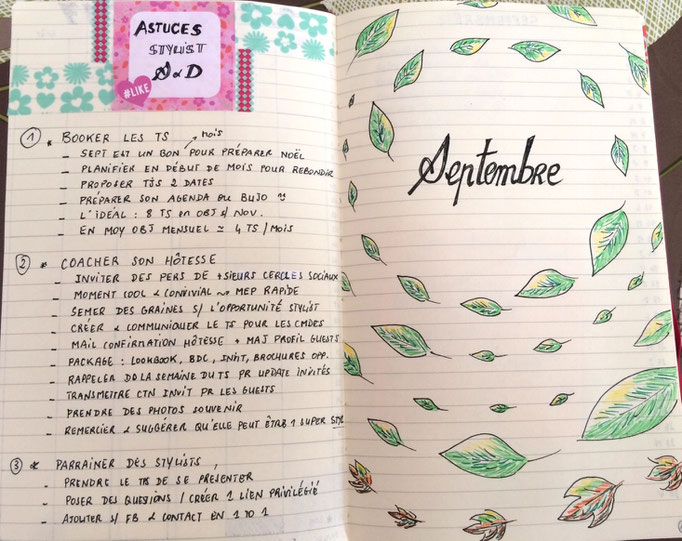 ASTUCES
STYLIST
S & D
#LIKE
① * BOOKER LES TS
mois
- SEPT EST UN BON POUR PRÉPARER NOËL
- PLANIFIER EN DÉBUT DE MOIS POUR REBONDIR
- PROPOSER TJS 2 DATES
- PRÉPARER SON AGENDA OU BUJO
- L'IDÉAL : 8 TS en OBJ s/ NOV.
- EN MOY OBJ MENSUEL ≃ 4 TS / MOIS
② * COACHER SON HÔTESSE
- INVITER DES PERS DE + SIEURS CERCLES SOCIAUX
- MOMENT COOL & CONVIVIAL → MEP RAPIDE
- SEMER DES GRAINES S/ L'OPPORTUNITÉ STYLIST
- CRÉER & COMMUNIQUER LE TS POUR LES CMDES
- MAIL CONFIRMATION HÔTESSE + MAJ PROFIL GUESTS
- PACKAGE : LOOKBOOK, BDC, INVIT, BROCHURES OPP.
- RAPPELER DLA SEMAINE DU TS PR UPDATE INVITÉS
- TRANSMETTRE CTN INVIT PR LES GUESTS
- PRENDRE DES PHOTOS SOUVENIR
- REMERCIER & SUGGÉRER QU'ELLE PEUT ÊTRE 1 SUPER STYL
③ * PARRAINER DES STYLISTS
- PRENDRE LE TPS DE SE PRÉSENTER
- POSER DES QUESTIONS / CRÉER 1 LIEN PRIVILÉGIÉ
- AJOUTER S/ FB & CONTACT EN 1 TO 1
Septembre